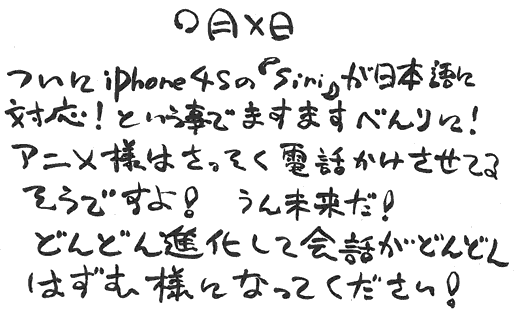 〇月×日
ついにiphone4Sの『Siri』が日本語に
対応！という事でますますべんりに！
アニメ様はさっそく電話かけさせてる
そうですよ！　うん未来だ！
どんどん進化して会話がどんどん
はずむ様になってください！